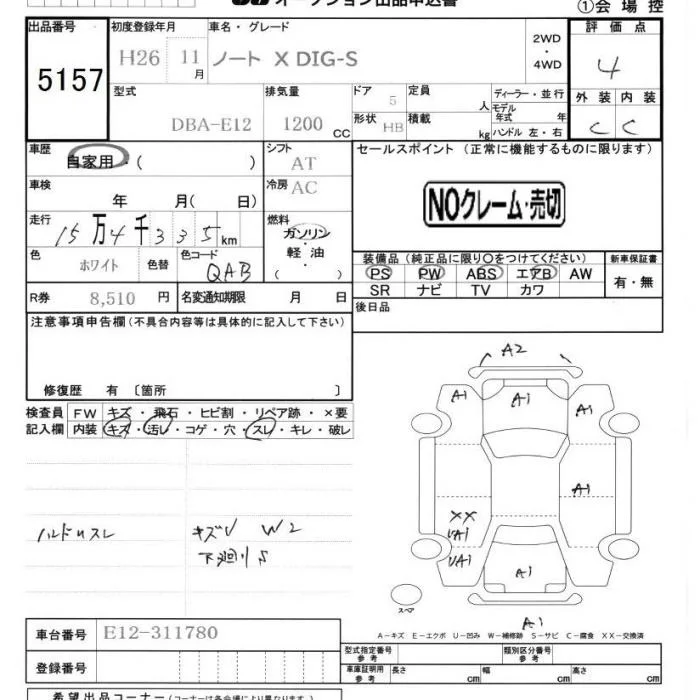 オークション出品申込書
①会場控
出品番号
5157
初度登録年月
H26 11月
車名・グレード
ノート X DIG-S
2WD
・
4WD
評価点
4
型式
DBA-E12
排気量
1200 CC
ドア
5
形状
HB
定員
人
積載
kg
ディーラー・並行
モデル年式 年
ハンドル 左・右
外装 内装
C C
車歴
自家用・( )
シフト
AT
セールスポイント(正常に機能するものに限ります)
NOクレーム・売切
車検
年 月( 日)
冷房
AC
走行
15万4千335km
燃料
ガソリン
軽油
( )
色
ホワイト
色替
色コード
QAB
装備品(純正品に限り○をつけてください)
PS PW ABS エアB AW
SR ナビ TV カワ
新車保証書
有・無
R券
8,510 円
名変通知期限 月 日
後日品
注意事項申告欄(不具合内容等は具体的に記入して下さい)
修復歴 有 〔箇所 〕
検査員
記入欄
FW キズ・飛石・ヒビ割・リペア跡・×要
内装 キズ・汚レ・コゲ・穴・スレ・キレ・破レ
ハンドルスレ
キズU W2
下廻りS
A2
A1
A1
A1
A1
XX
UA1
UA1
A1
A1
スペア
A−キズ E−エクボ U−凹み W−補修跡 S−サビ C−腐食 XX−交換済
車台番号
E12-311780
登録番号
型式指定番号
参考
類別区分番号
参考
車庫証明用
参考
長さ cm
幅 cm
高さ cm
希望出品コーナー(コーナーは各会場により異なります。)